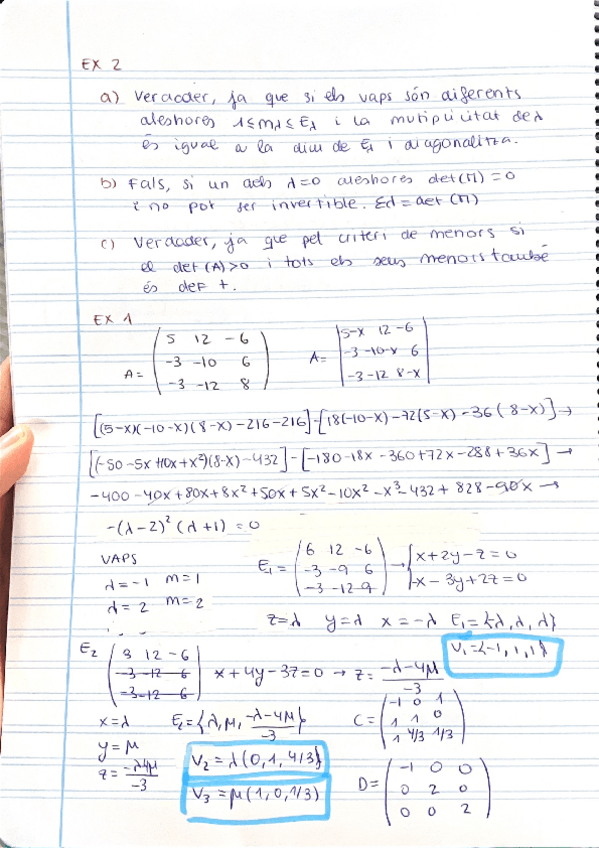 EX 2
a) Verader, ja que si els vaps són diferents
aleshores 1≤mλ≤Eλ i la mutiplicitat de λ
és igual a la dim de Eλ i diagonalitza.
b) Fals, si un dels λ=0 aleshores det(M)=0
i no pot ser invertible. Ed = det(M)
c) Verdader, ja que pel criteri de menors si
el det(A)>0 i tots els seus menors també
és def +.
EX 1
A= (5 12 -6
-3 -10 6
-3 -12 8)
A= |5-x 12 -6
-3 -10-x 6
-3 -12 8-x|
[(5-x)(-10-x)(8-x)-216-216]-[18(-10-x)-72(5-x)-36(8-x)]→
[(-50-5x+10x+x²)(8-x)-432]-[-180-18x-360+72x-288+36x]→
-400-40x+80x+8x²+50x+5x²-10x²-x³-432+828-90x→
-(λ-2)²(λ+1)=0
VAPS
λ=-1 m=1
λ=2 m=2
E₁= (6 12 -6
-3 -9 6
-3 -12 9) → {x+2y-z=0
-x-3y+2z=0
z=λ y=λ x=-λ E₁={λ, λ, λ}
V₁={-1, 1, 1}
E₂ (3 12 -6
-3 -12 6
-3 -12 6) x+4y-3z=0 → z= -λ-4μ/-3
x=λ E₂={λ, μ, -λ-4μ/-3}
y=μ
z= -λ4μ/-3
V₂=λ(0, 1, 4/3}
V₃=μ(1, 0, 1/3)
C= (-1 0 1
1 1 0
1 4/3 1/3)
D= (-1 0 0
0 2 0
0 0 2)